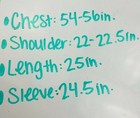 • Chest: 54-56in.
• Shoulder: 22-22.5in.
• Length: 25in.
• Sleeve: 24.5in.